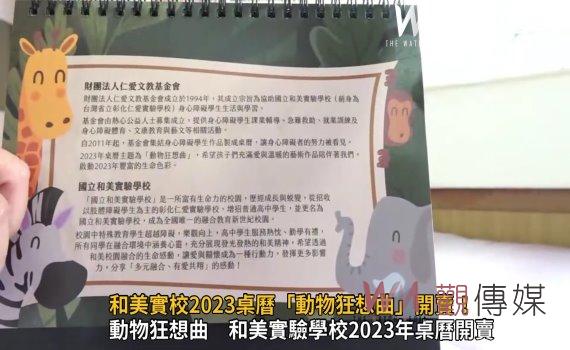 THE WAT
財團法人仁愛文教基金會
財團法人仁愛文教基金會成立於1994年，其成立宗旨為協助國立和美實驗學校（前身為
台灣省立彰化仁愛實驗學校）身心障礙學生生活與學習。
基金會由熱心公益人士募集成立，提供身心障礙學生課業輔導、急難救助、就業訓練及
身心障礙體育、文康教育與藝文等相關活動。
自2011年起，基金會集結身心障礙學生作品製成桌曆，讓身心障礙者的努力被看見。
2023年桌曆主題為「動物狂想曲」，希望孩子們充滿愛與溫暖的藝術作品陪伴著我們，
啟動2023年豐富的生命色彩。
國立和美實驗學校
「國立和美實驗學校」是一所富有生命力的校園，歷經成長與蛻變，從招收
以肢體障礙學生為主的彰化仁愛實驗學校，增招普通高中學生，並更名為
國立和美實驗學校，成為全國唯一的融合教育新世紀校園。
校園中特殊教育學生超越障礙，樂觀向上，高中學生服務熱忱、勤學有禮，
所有同學在融合環境中涵養心靈，充分展現發光發熱的和美精神，希望透過
和美校園融合的生命感動，讓愛與關懷成為一種行動力，發揮更多影響
力，分享「多元融合、有愛共翔」的感動！
觀傳媒
和美實校2023桌曆「動物狂想曲」開賣！
動物狂想曲　和美實驗學校2023年桌曆開賣